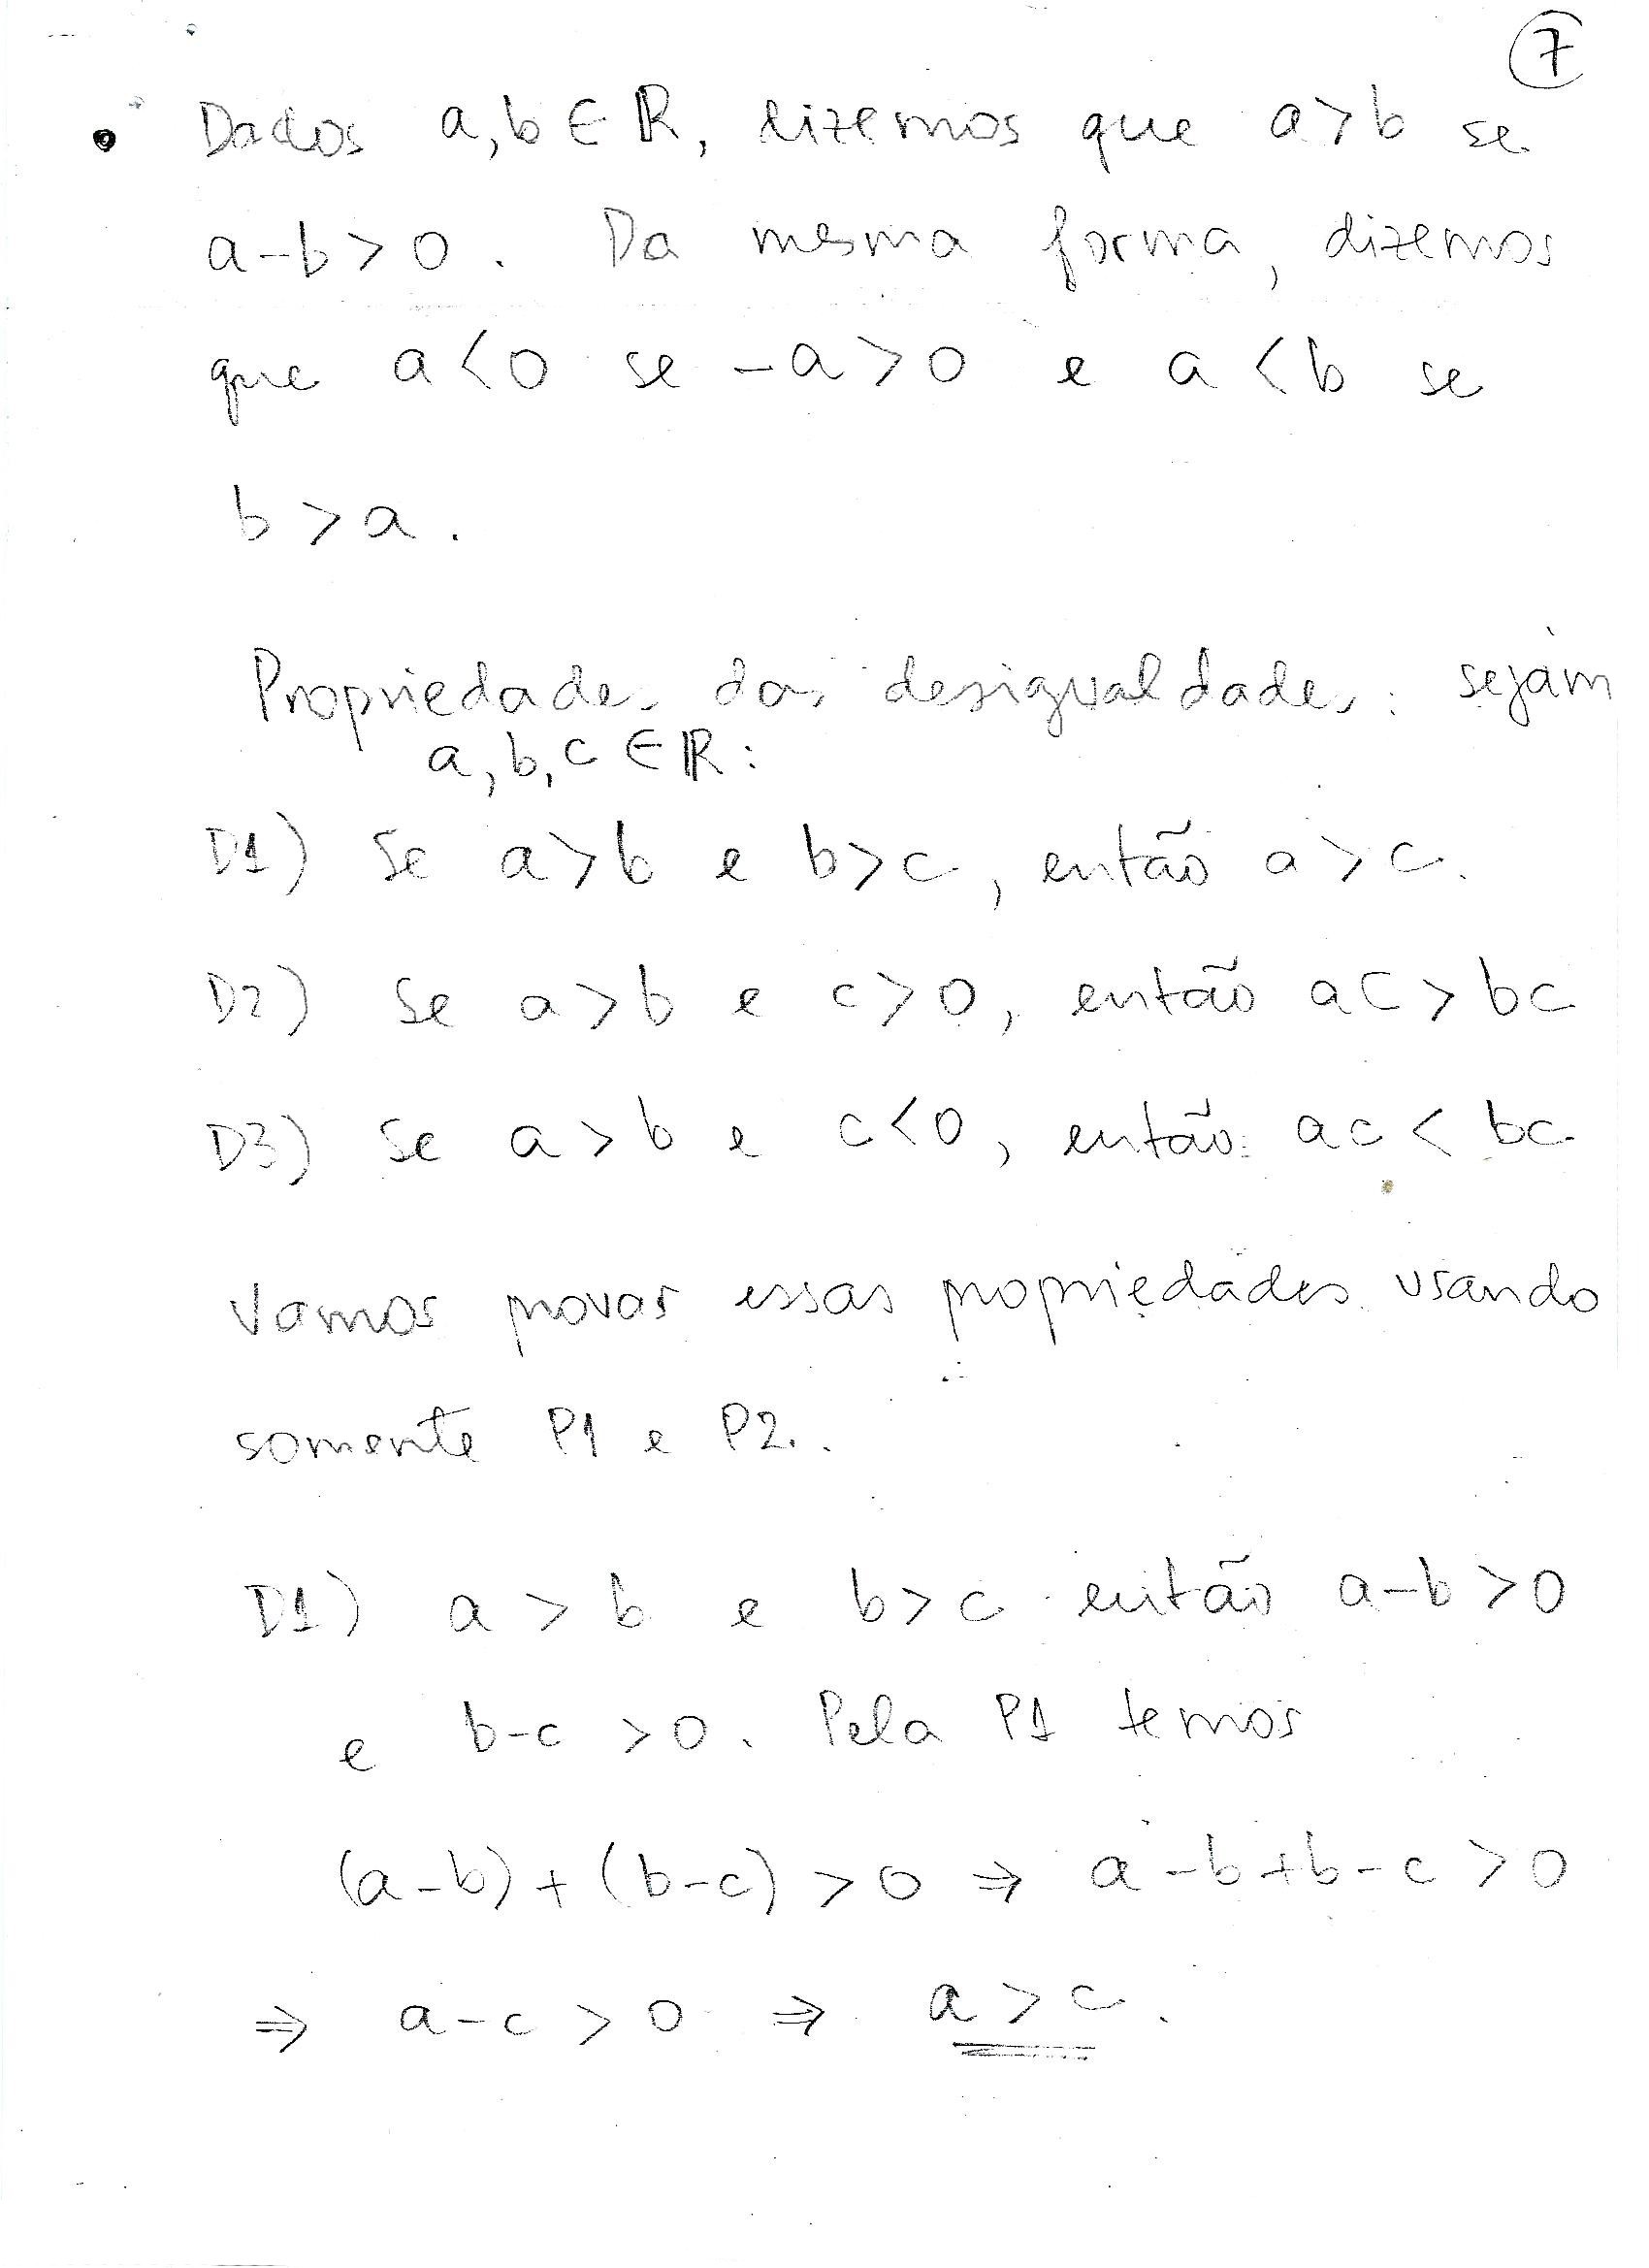 7
• Dados a, b ∈ ℝ, dizemos que a > b se
a - b > 0. Da mesma forma, dizemos
que a < 0 se -a > 0 e a < b se
b > a.
Propriedades das desigualdades: sejam
a, b, c ∈ ℝ:
D1) Se a > b e b > c, então a > c.
D2) Se a > b e c > 0, então ac > bc
D3) Se a > b e c < 0, então ac < bc
Vamos provar essas propriedades usando
somente P1 e P2.
D1) a > b e b > c então a - b > 0
e b - c > 0. Pela P1 temos
(a - b) + (b - c) > 0 ⇒ a - b + b - c > 0
⇒ a - c > 0 ⇒ a > c.